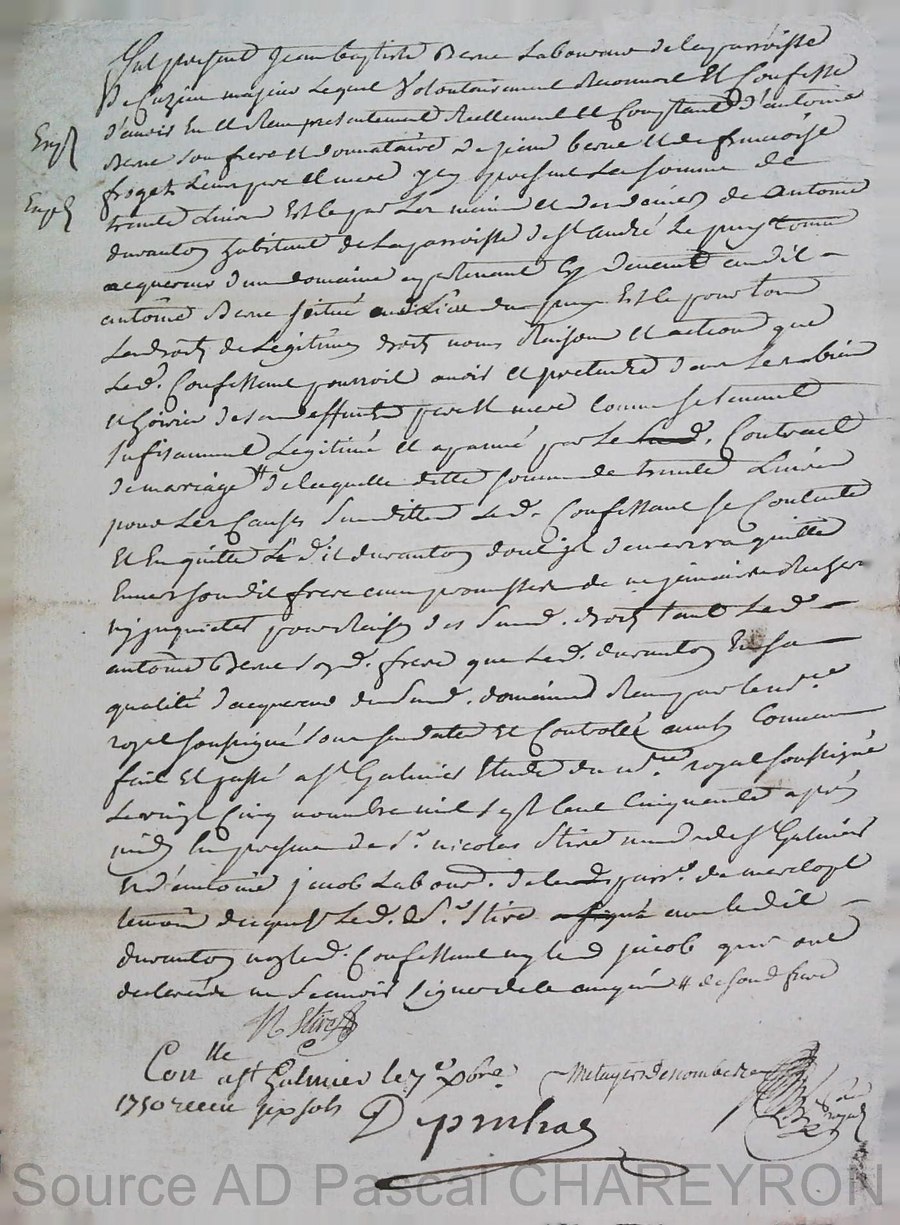 Fut present Jean baptiste Berne Laboureur de la parroisse
De Cuzieu majeur Lequel Volontairement Reconnoit Et Confesse
d'avoir Eu et Reçu presentement Reellement et Comptant d'antoine
Berne son frere et donnataire de jean berne et de françoise
froget Leurs pere et mere icy present La somme de
trente Livres Et le par Les mains et des deniers de antoine
duranton habitant de La parroisse de St andré Le puy comme
acquereur d'un domaine apartenant cy devant audit
antoine Berne scitué audit Lieu du puy Et le pour tous
Les droits de Legitimes droits noms Raisons et actions que
Led. Confessant pourroit avoir et pretendre dans Les biens
et hoirie de ses deffunts pere et mere comme se tenant
sufisamment Legitimé et apanné par Le Contract
de mariage # de laquelle ditte somme de trente Livres
pour Les Causes Susdittes Led. Confessant se Contente
Et En quitte Le dit duranton dont il demeurera quitte
Envers son dit frere avec promesse de ne jamais Rechercher
ny inquieter pour Raison des Susd. droits tant Led.
antoine Berne sond. frere que Led. duranton En sa
qualité d'acquereur du Susd. domaine Reçu par le nre.
royal soussigné sous sa datte Et Controllé
fait Et passé a St Galmier Etude du nre. royal soussigné
Le vingt Cinq novembre mil sept Cent Cinquante apres
midy En presence de Sr. nicolas Stire de St Galmier
et d'antoine jacob Labour. de la parr.
temoins Led. Sr. Stire a signé avec le dit
duranton non led. Confessant ny led jacob qui ont
declarés ne Scavoir signer de ce enquis # de sond frere
N Stire
Conlle a St Galmier le 7e Xbre
1750 recu six sols
Source AD Pascal CHAREYRON